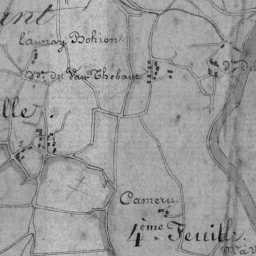 ant
launay Bohion
Mn. du Vau Thebaut
lle.
Cameru
4ème Feuille.